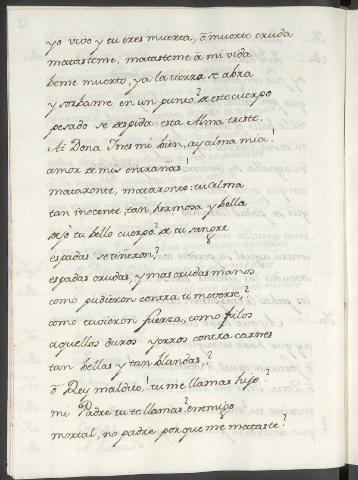 yo vivo y tu eres muerta, ō muerte cruda
matasteme, matasteme ā mi vida
heme muerto, ya la tierra se abra
y sorbame en un punto? de este cuerpo
pesado se despida esta Alma triste.
Ai Dona Ines mi bien, ay alma mia!
amor de mis entrañas!
mataronte, mataronte: tu alma
tan inocente, tan hermosa y bella
dejo tu bello cuerpo? de tu sangre
espadas se tiñeron?
espadas crudas, y mas crudas manos
como pudieron contra ti moverse,?
como tuvieron fuerza, como filos
aquellos duros yerros contra carnes
tan bellas y tan blandas,?
ō Rey maldito,! tu me llamas hijo?
mi Padre tu te llamas? enemigo
mortal, no padre por que me mataste?